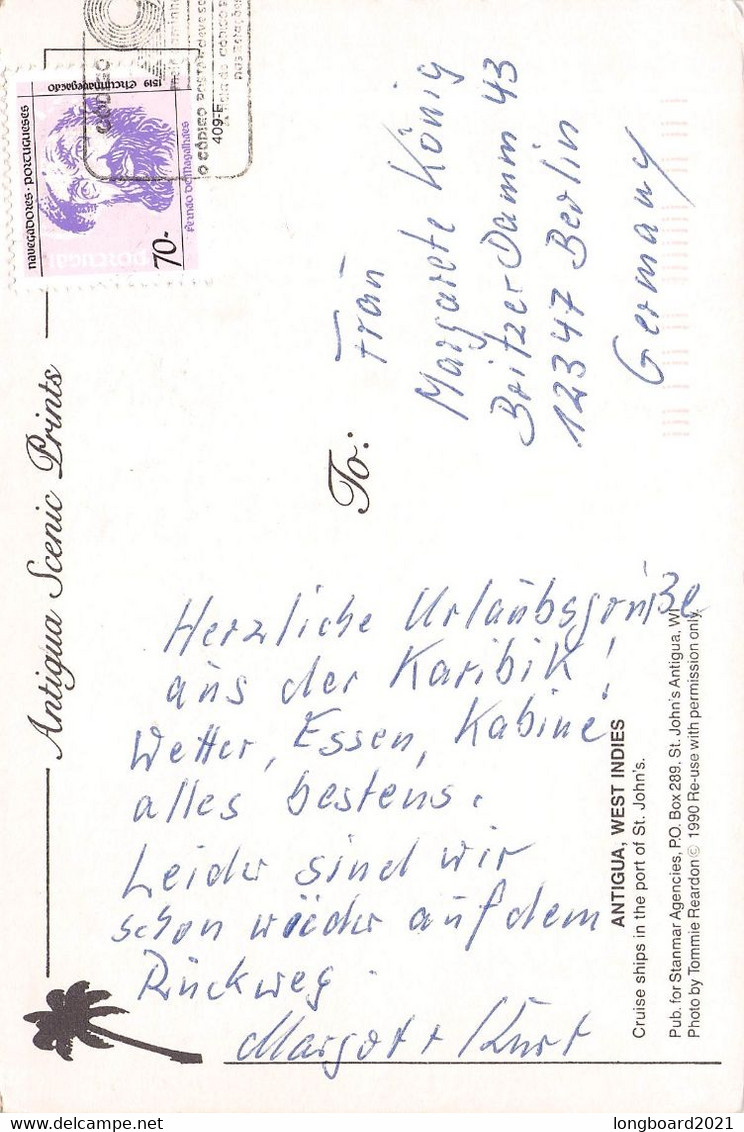 Antigua Scenic Prints
Herzliche Urlaubsgrüße
aus der Karibik!
Wetter, Essen, Kabine
alles bestens.
Leider sind wir
schon wieder auf dem
Rückweg.
Margot + Kurt
ANTIGUA, WEST INDIES
Cruise ships in the port of St. John's.
Pub. for Stanmar Agencies, P.O. Box 289, St. John's Antigua, WI
Photo by Tommie Reardon© 1990 Re-use with permission only.
To:
Frau
Margarete König
Britzer Damm 43
12347 Berlin
Germany
navegadores · portugueses
PORTUGAL
1519 Circumnavegação
Fernão de Magalhães
70-
CÓDIGO
O CÓDIGO POSTAL deve se
409-E
longboard2021